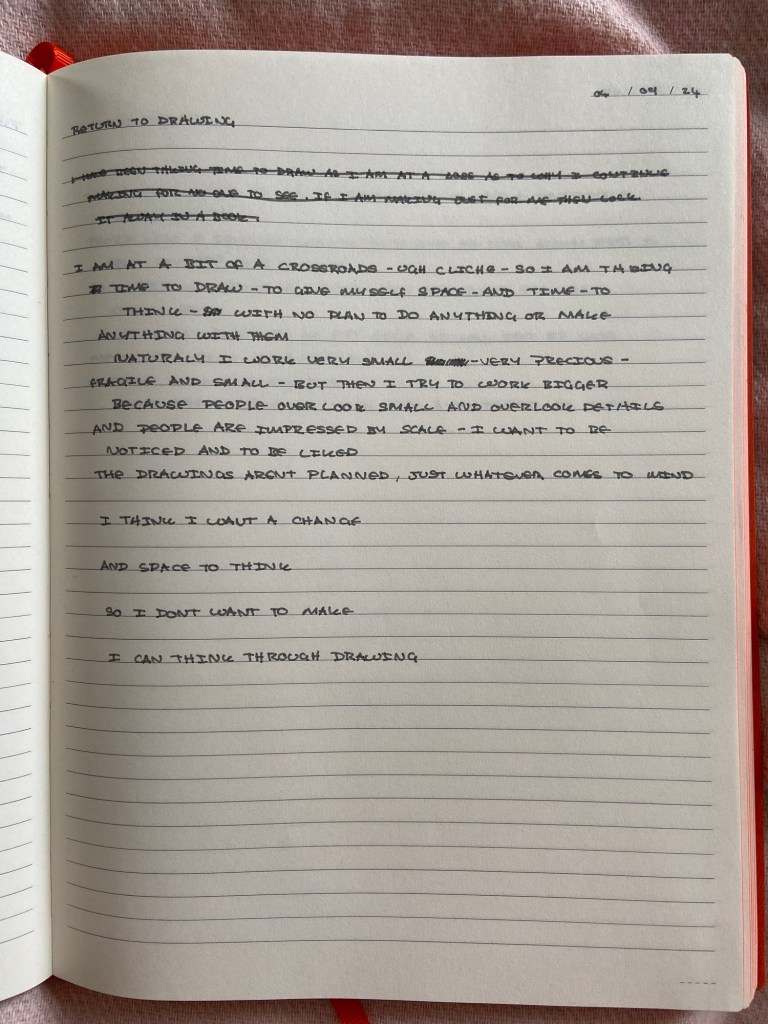 04 / 09 / 24
RETURN TO DRAWING
I HAVE BEEN TAKING TIME TO DRAW AS I AM AT A AS TO WHY I CONTINUE
MAKING FOR NO ONE TO SEE. IF I AM MAKING JUST FOR ME THEN LOCK
IT AWAY IN A BOOK.
I AM AT A BIT OF A CROSSROADS - UGH CLICHE - SO I AM TAKING
TIME TO DRAW - TO GIVE MYSELF SPACE - AND TIME - TO
THINK - SO WITH NO PLAN TO DO ANYTHING OR MAKE
ANYTHING WITH THEM
NATURALY I WORK VERY SMALL - VERY PRECIOUS -
FRAGILE AND SMALL - BUT THEN I TRY TO WORK BIGGER
BECAUSE PEOPLE OVER LOOK SMALL AND OVERLOOK DETAILS
AND PEOPLE ARE IMPRESSED BY SCALE - I WANT TO BE
NOTICED AND TO BE LIKED
THE DRAWINGS ARENT PLANNED, JUST WHATEVER COMES TO MIND
I THINK I WANT A CHANGE
AND SPACE TO THINK
SO I DONT WANT TO MAKE
I CAN THINK THROUGH DRAWING